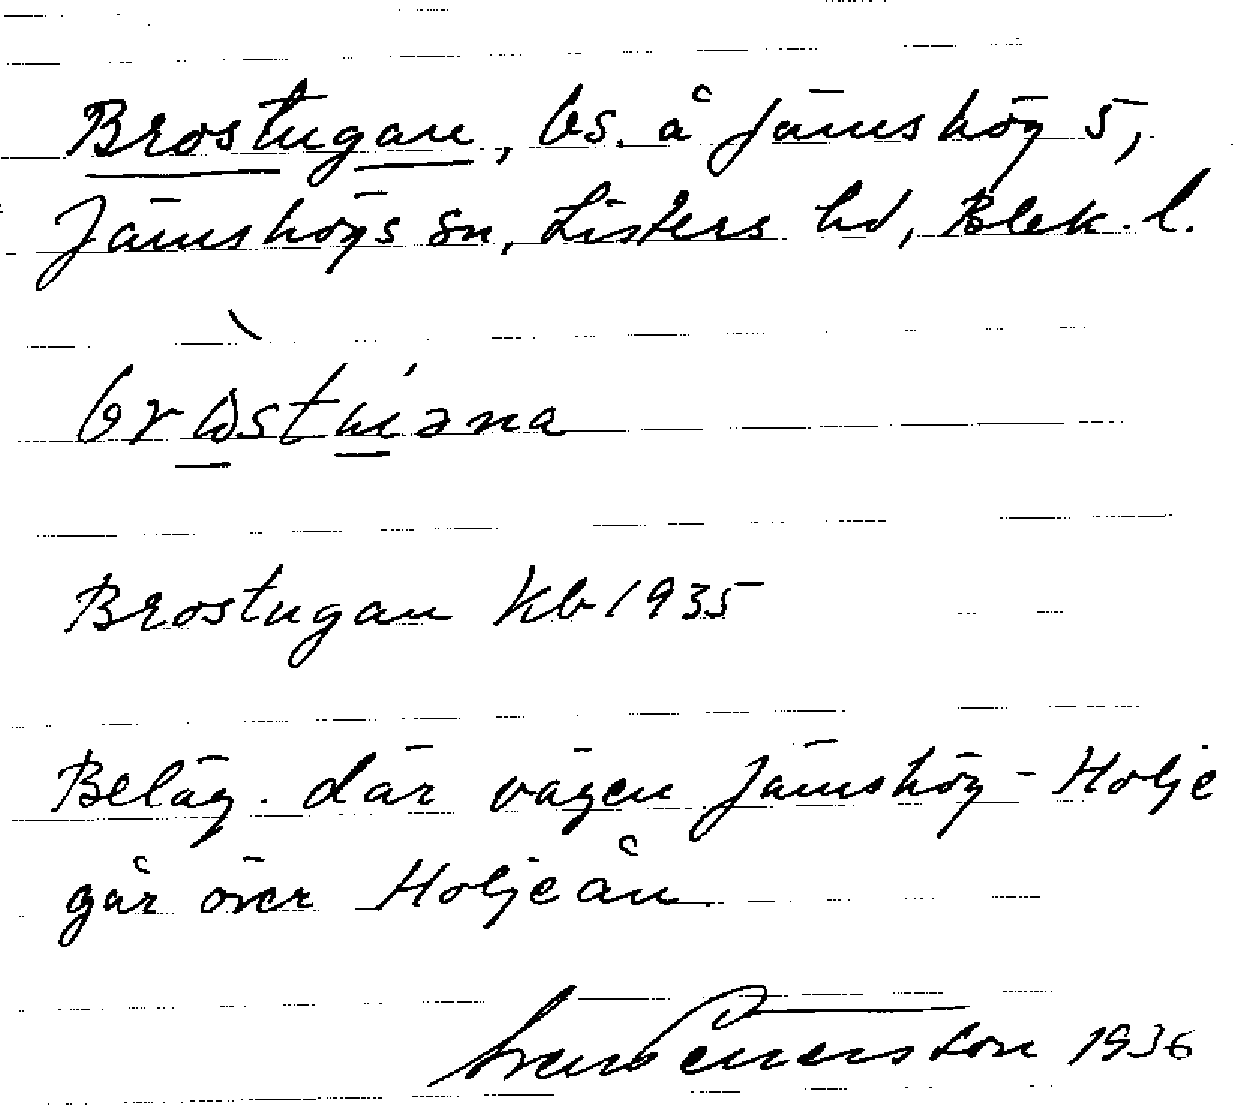 Brostugan, bs. å Jämshög 5,
Jämshögs sn, Listers hd, Blek. l.
Brostugan kb 1935
Beläg. där vägen Jämshög - Holje
går över Holjeån
1936